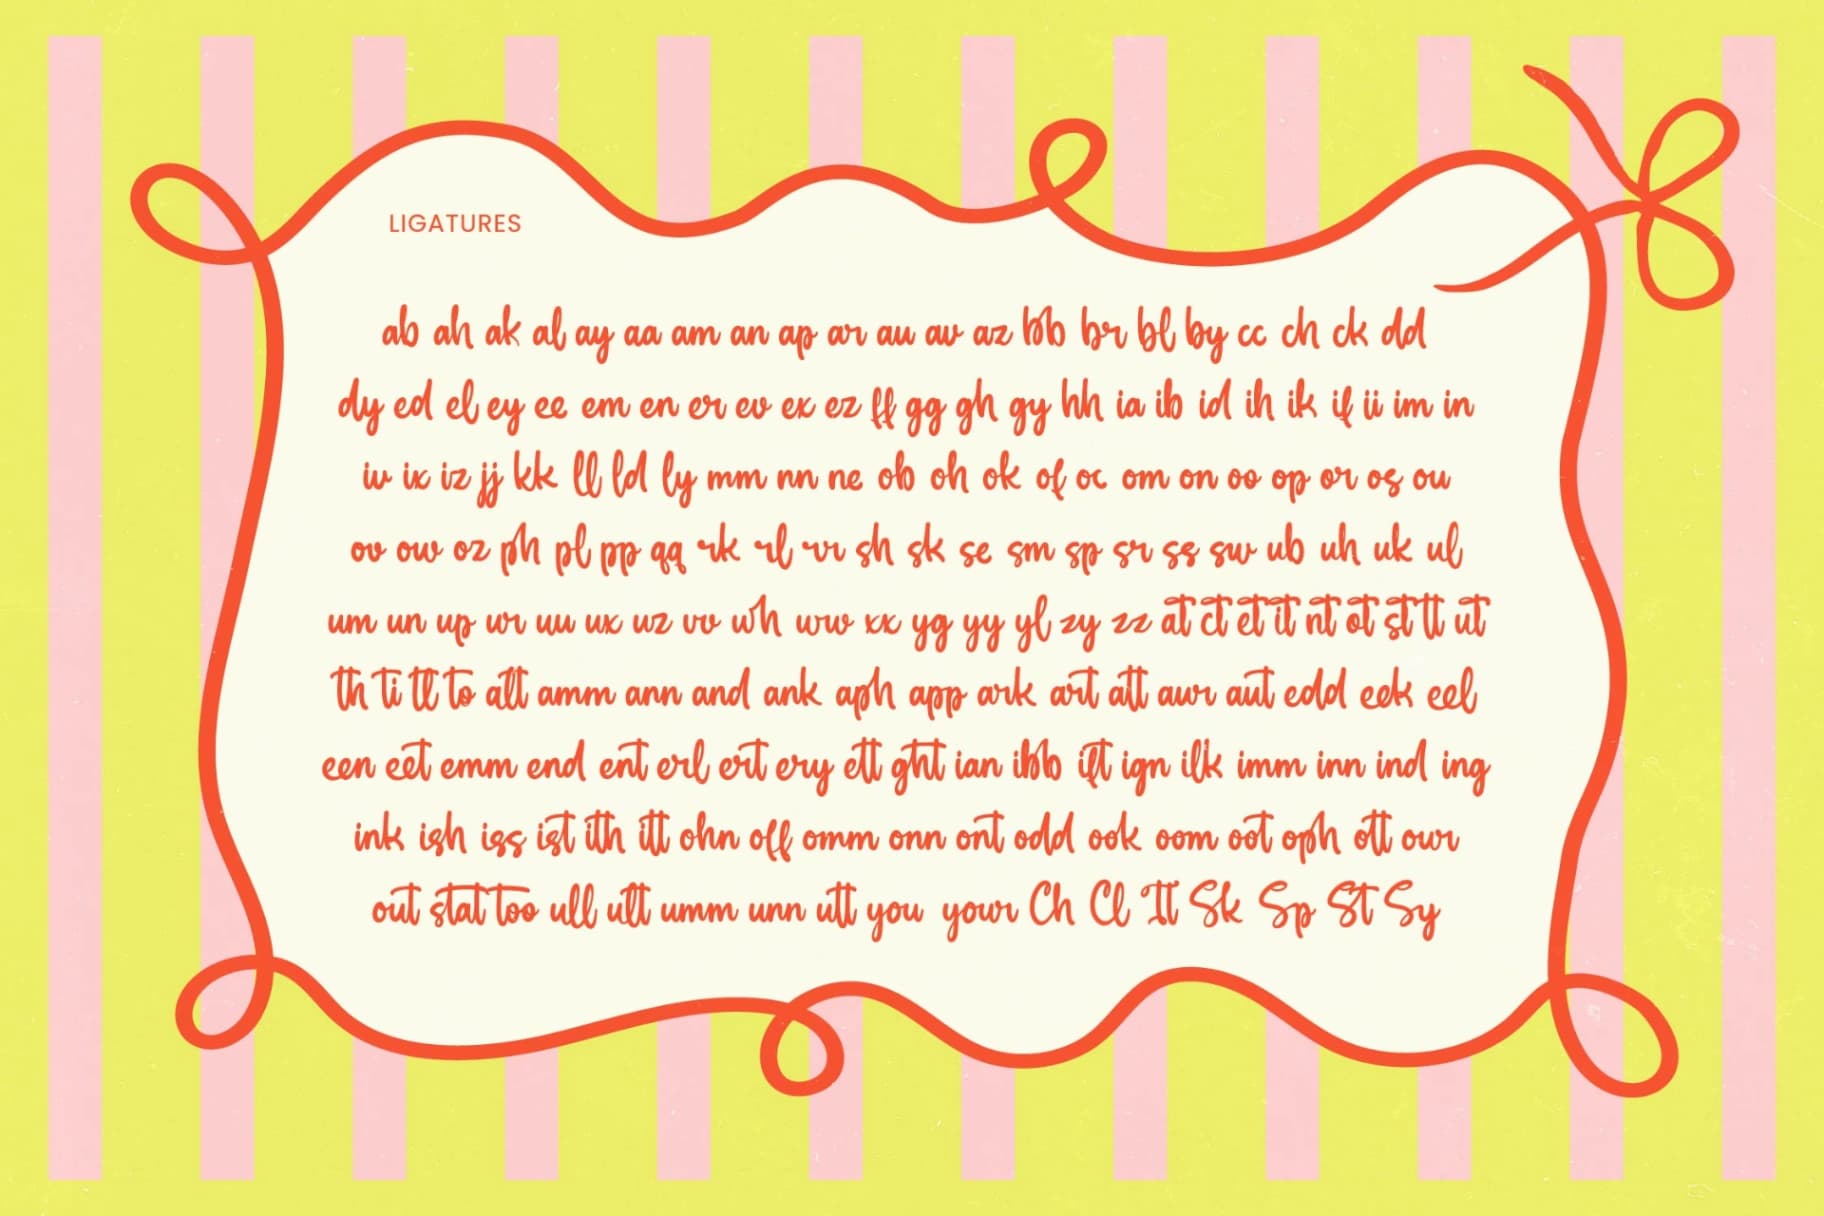 LIGATURES
ab ah ak al ay aa am an ap ar au av az bb br bl by cc ch ck dd
dy ed el ey ee em en er ev ex ez ff gg gh gy hh ia ib id ih ik if ii im in
iv ix iz jj kk ll ld ly mm nn ne ob oh ok of oc om on oo op or os ou
ov ow oz ph pl pp qq rk rl rr sh sk se sm sp sr ss sw ub uh uk ul
um un up ur uu ux uz vv wh ww xx yg yy yl zy zz at ct et it nt ot st tt ut
th ti tl to all amm ann and ank aph app ark art att awr aut edd eek eel
een eet emm end ent erl ert ery ett ght ian ibb ift ign ilk imm inn ind ing
ink ish iss ist ith itt ohn off omm onn ont odd ook oom oot oph ott our
out stat too ull ult umm unn utt you your Ch Cl It Sk Sp St Sy